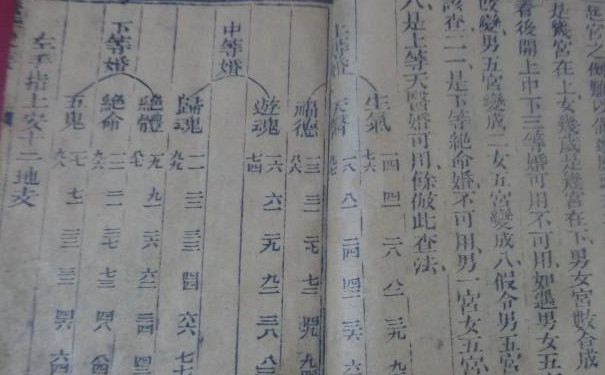 是幾宮在上女幾歲是幾宮在下男女宮數合成
看後開上中下三等婚可用不可用如遇男女五
改變男五宮變成二女五宮變成八假令男五宮
該查二一是下等絕命婚不可用男一宮女五宮
八是上等天醫婚可用餘倣此查法
上等婚
生氣 一四 四一 二八 八二 三九 九
七六
天醫 一八 八一 二四 四二 三六 六
九七
福德 一三 三一 二七 七二 四九 九四
八六
中等婚
遊魂 一六 六一 二九 九二 三八 八三
七四
歸魂 一一 二二 三三 四四 六六 七七
九九
下等婚
絕體 一九 九一 二六 六二 三四 四三
八七
絕命 一二 二一 三七 七三 四八 八四
九六
五鬼 一七 七一 二三 三二 四六 六四
九八
左手指上安十二地支